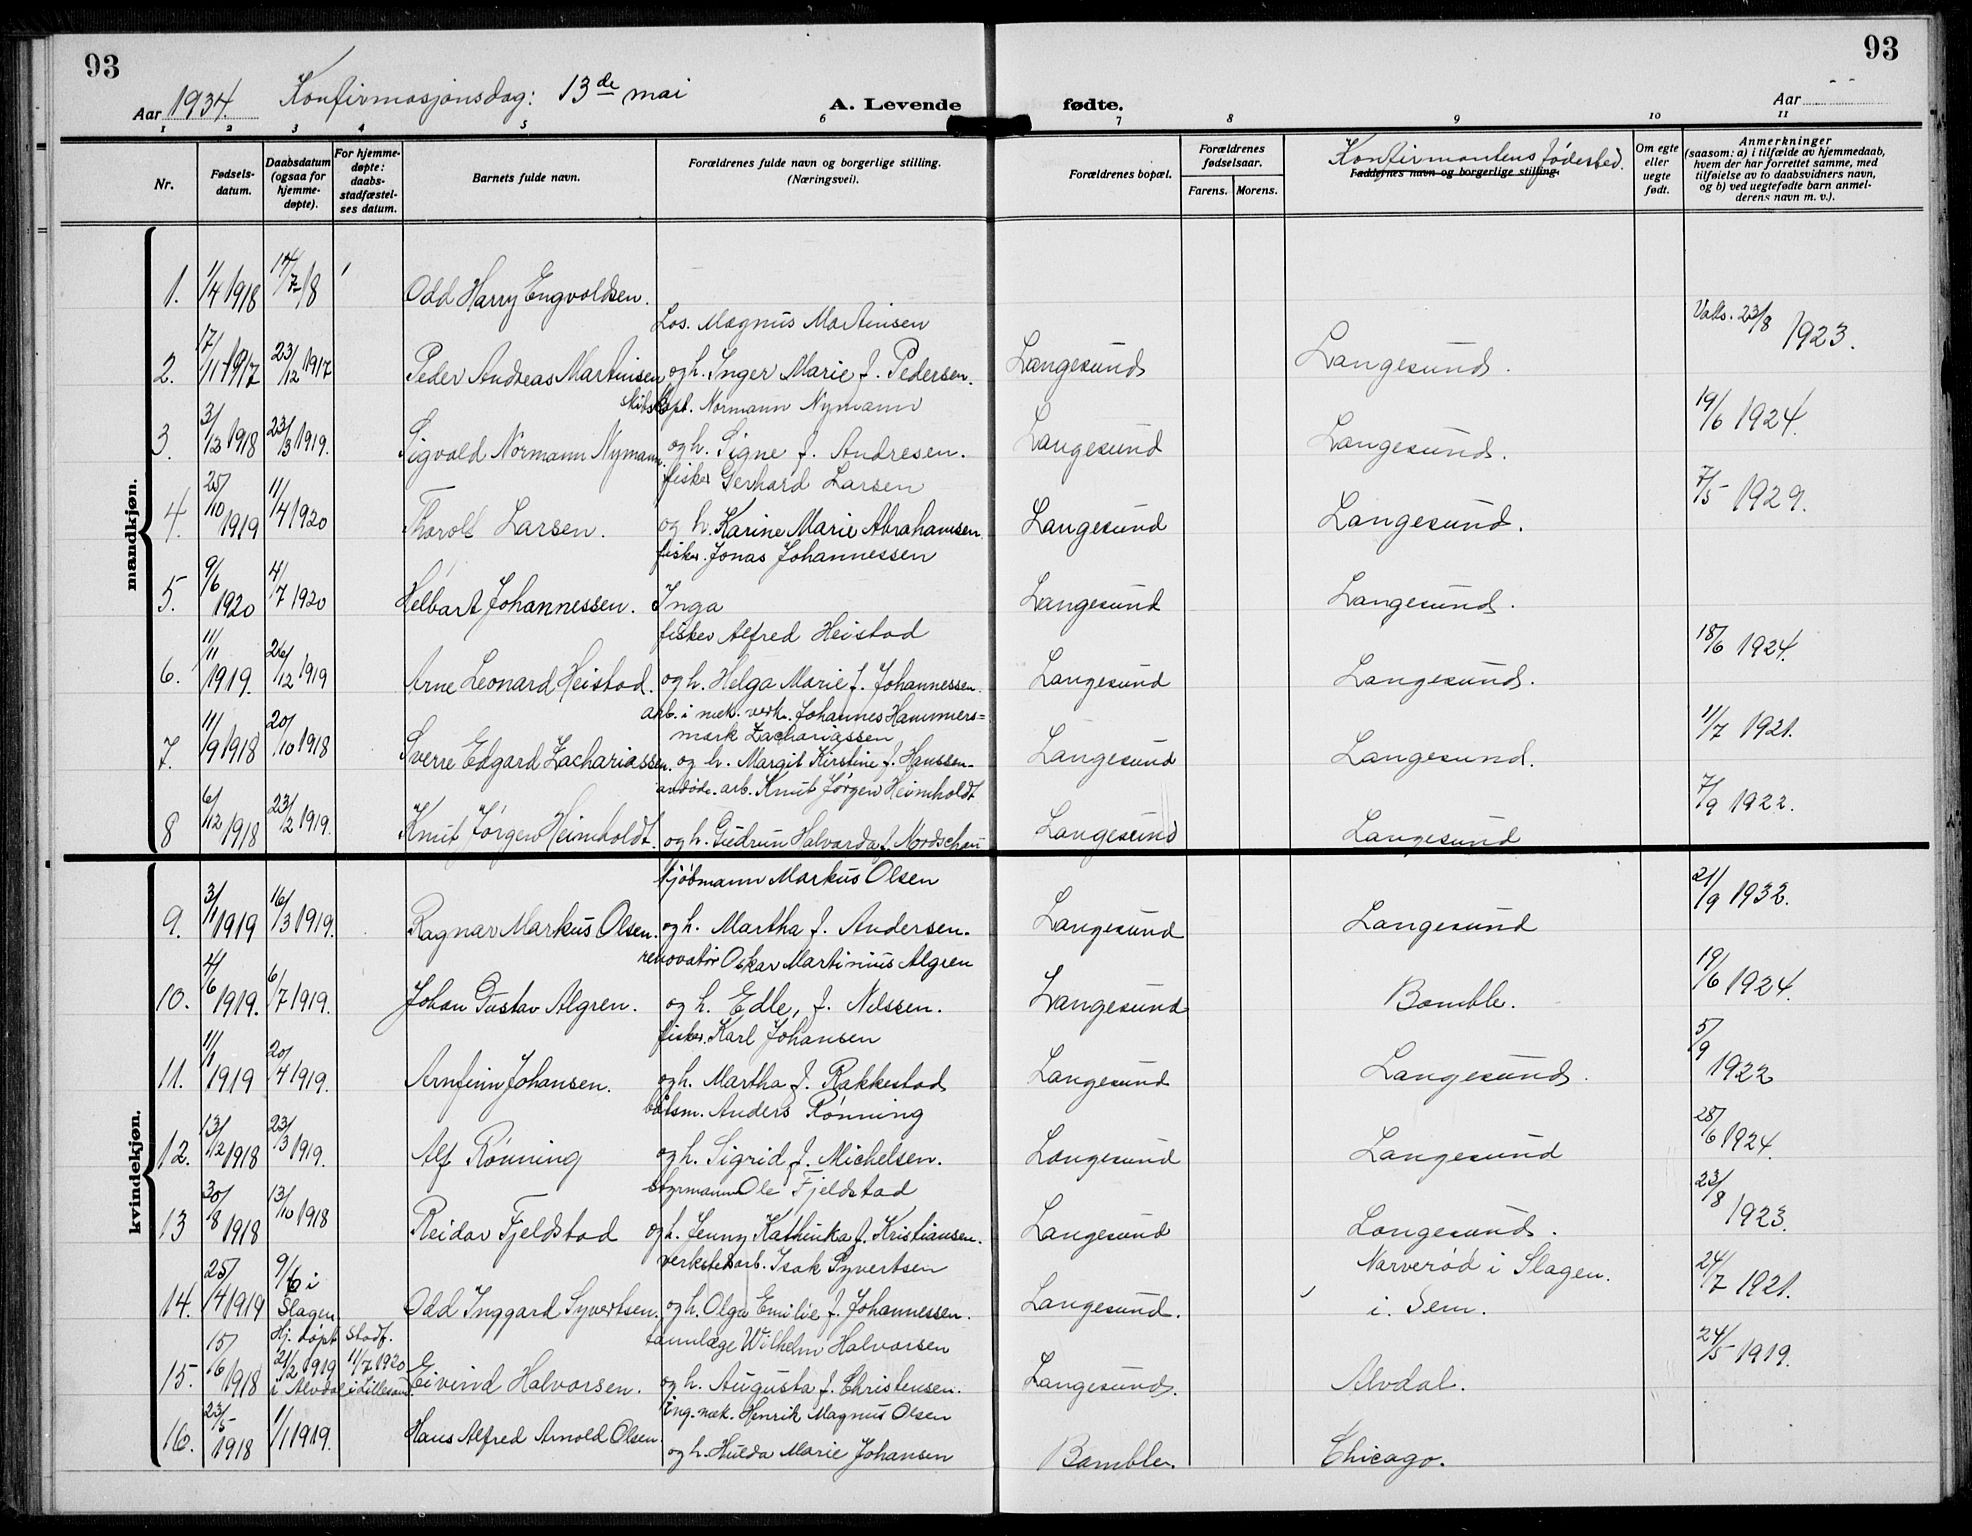 93
93
Aar 1934. Konfirmasjonsdag: 13de mai
A. Levende fødte.
Aar
1 2 3 4 5 6 7 8 9 10 11
Nr.
Fødsels-
datum.
Daabsdatum
(ogsaa for
hjemme-
døpte).
For hjemme-
døpte:
daabs-
stadfæstel-
ses datum.
Barnets fulde navn.
Forældrenes fulde navn og borgerlige stilling.
(Næringsvei).
Forældrenes bopæl.
Forældrenes
fødselsaar.
Farens. Morens.
Konfirmantens fødested.
Faddernes navn og borgerlige stilling.
Om egte
eller
uegte
født.
Anmerkninger
(saasom: a) i tilfælde av hjemmedaab,
hvem der har forrettet samme, med
tilføielse av to daabsvidners navn,
og b) ved uegtefødte barn anmel-
derens navn m. v.).
mandkjøn.
1. 1/4 1918 14/7-18 Odd Harry Engvoldsen.
Los. Magnus Martinsen
2. 17/11 1917 23/12 1917 Peder Andreas Martinsen og h. Inger Marie f. Pedersen. Langesund Langesund. Vaks. 23/8 1923.
Skibskapt. Normann Nymann
3. 3/12 1918 23/3 1919. Sigvald Normann Nymann. og h. Signe f. Andresen. Langesund Langesund. 19/6 1924.
fisker Gerhard Larsen
4. 25/10 1919 11/4 1920 Thorolf Larsen. og h. Karine Marie Abrahamsen. Langesund Langesund. 7/5 1929.
fisker. Jonas Johannessen
5. 9/6 1920 4/7 1920 Helbart Johannessen. Inga Langesund Langesund.
fisker Alfred Heistad
6. 11/11 1919. 26/12 1919 Arne Leonard Heistad. og h. Helga Marie f. Johannessen. Langesund Langesund. 18/6 1924.
arb. i mek. verk. Johannes Hammers=
mark Zachariassen
7. 11/9 1918 20/10 1918 Sverre Edgard Zachariassen. og h. Margit Kirstine f. Hanssen. Langesund Langesund. 11/7 1921.
arb. Knut Jørgen Heimholdt
8 6/12 1918 23/2 1919. Knut Jørgen Heimholdt. og h. Gudrun Halvarda f. Nordschau Langesund Langesund 7/9 1922.
kvindekjøn.
kjøbmann Markus Olsen
9. 3/1 1919 16/3 1919. Ragnar Markus Olsen. og h. Martha f. Andersen. Langesund Langesund 21/9 1932.
renovatør Oskar Martinius Algren
10. 4/6 1919. 6/7 1919. Johan Gustav Algren. og h. Edle, f. Nilssen. Langesund Bamble. 19/6 1924.
fisker. Karl Johansen
11. 11/1 1919 20/4 1919. Arnfinn Johansen. og h. Martha f. Rakkestad Langesund Langesund. 5/9 1922
båtsm. Anders Rønning
12. 13/12 1918 23/3 1919. Alf Rønning og h. Sigrid f. Michelsen. Langesund Langesund 28/6 1924.
Styrmann Ole Fjeldstad
13 30/8 1918 13/10 1918 Reidar Fjeldstad og h. Jenny Kathinka f. Kristiansen. Langesund Langesund. 23/8 1923.
verkstedsarb. Isak Syvertsen Narverød i Slagen.
14. 25/4 1919 9/6 i Slagen Odd Inggard Syvertsen. og h. Olga Emilie f. Johannessen. Langesund. i. Sem. 24/7 1921.
tannlæge Wilhelm Halvorsen
15. 15/6 1918 Hj. døpt 21/2 1919 i Alvdal Stadf. 11/7 1920 i Lillesand. Eivind Halvorsen. og h. Augusta f. Christensen. Langesund. Alvdal. 24/5 1919.
Eng. mek. Henrik Magnus Olsen
16. 23/5 1918 1/1 1919. Hans Alfred Arnold Olsen. og h. Hulda Marie Johansen Bamble. Chicago.